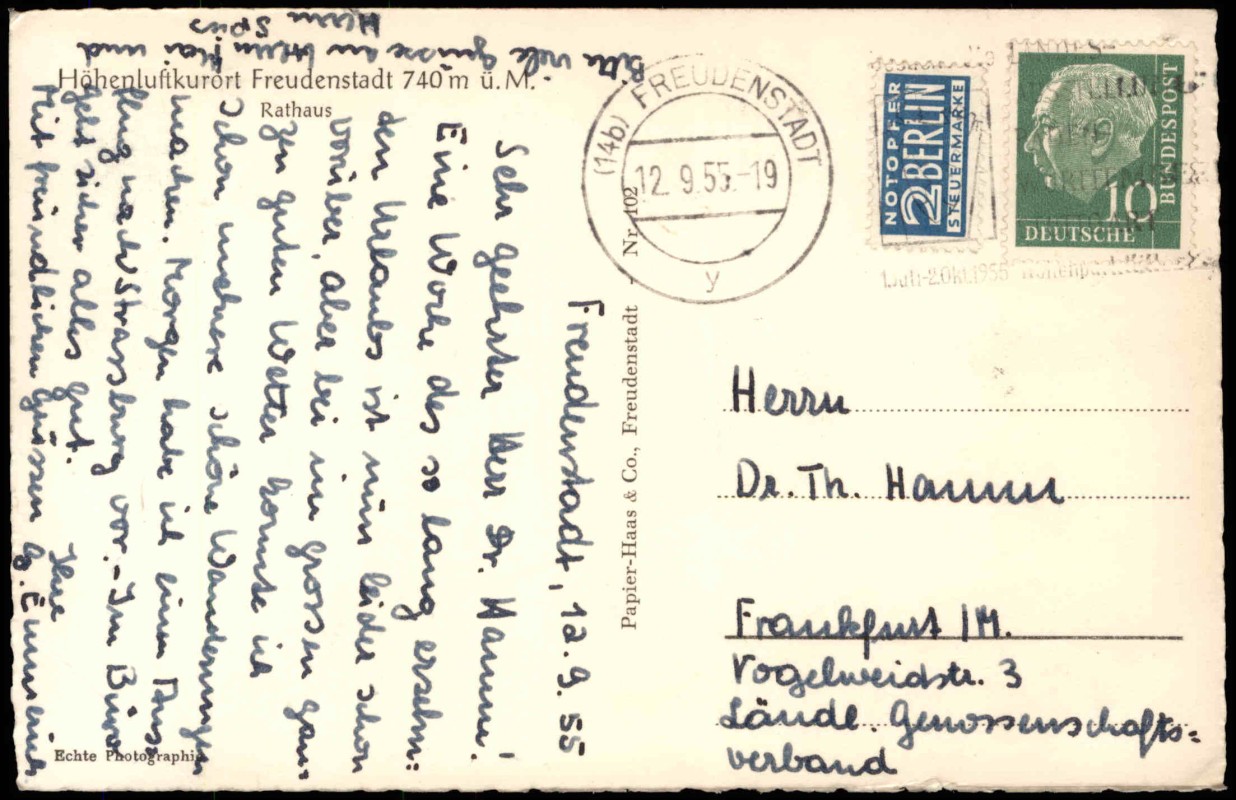 Höhenluftkurort Freudenstadt 740 m ü. M.
Rathaus
Freudenstadt, 12.9.55
Sehr geehrter Herr Dr. Hamm!
Eine Woche des so lang ersehn=
den Urlaubs ist nun leider schon
vorüber, aber bei im grossen gan=
zen guten Wetter konnte ich
schon mehrere schöne Wanderungen
machen. Morgen habe ich einen Aus=
flug nach Strassburg vor. - Im Büro
geht sicher alles gut.
Mit freundlichen Grüssen Ihre
Bitte viele Grüsse an Herrn Mai und
Herrn
Echte Photographie
Papier-Haas & Co., Freudenstadt - Nr. 102
(14b) FREUDENSTADT
12.9.55.-19
y
NOTOPFER
2 BERLIN
STEUERMARKE
DEUTSCHE
BUNDESPOST
10
LANDES-
STUTTGART
1.Juli-2.Okt.1955 Höhenpark
Herrn
Dr. Th. Hamm
Frankfurt /M.
Vogelweidstr. 3
Ländl. Genossenschafts=
verband